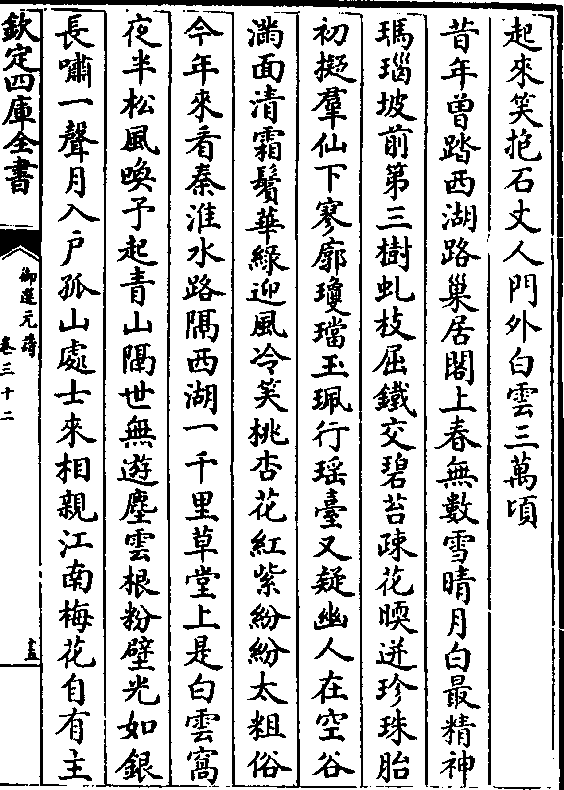 起來笑抱石丈人門外白雲三萬頃
昔年曽踏西湖路巢居閣上春無數雪晴月白最精神
瑪瑙坡前第三樹虬枝屈鐵交碧苔疎花暎迸珍珠胎
初擬羣仙下寥廓瓊璫玉珮行瑶臺又疑幽人在空谷
滿面清霜鬢華緑迎風冷笑桃杏花紅紫紛紛太粗俗
今年來看秦淮水路隔西湖一千里草堂上是白雲窩
夜半松風喚予起青山隔世無遊塵雲根粉壁光如銀
長嘯一聲月入户孤山處士來相親江南梅花自有主
欽定四庫全書
御選元詩
卷三十二